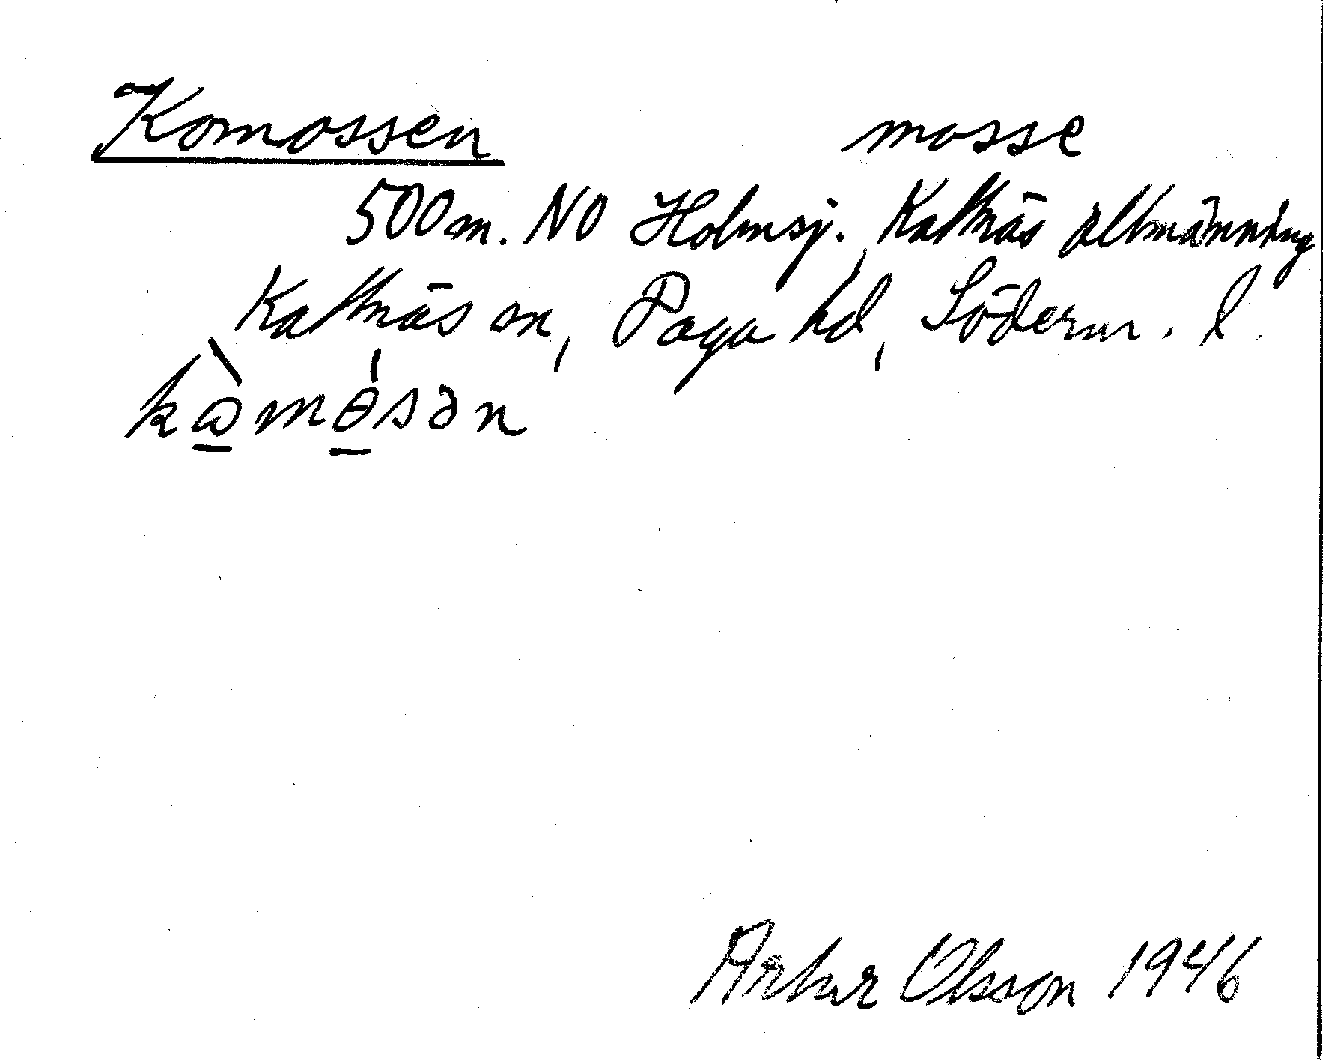 Komossen mosse
500 m. NO Holmsj. Kattnäs allmänning
Kattnäs sn, Daga hd, Söderm. l.
kɷ̀mɵ́sən
Artur Olsson 1946